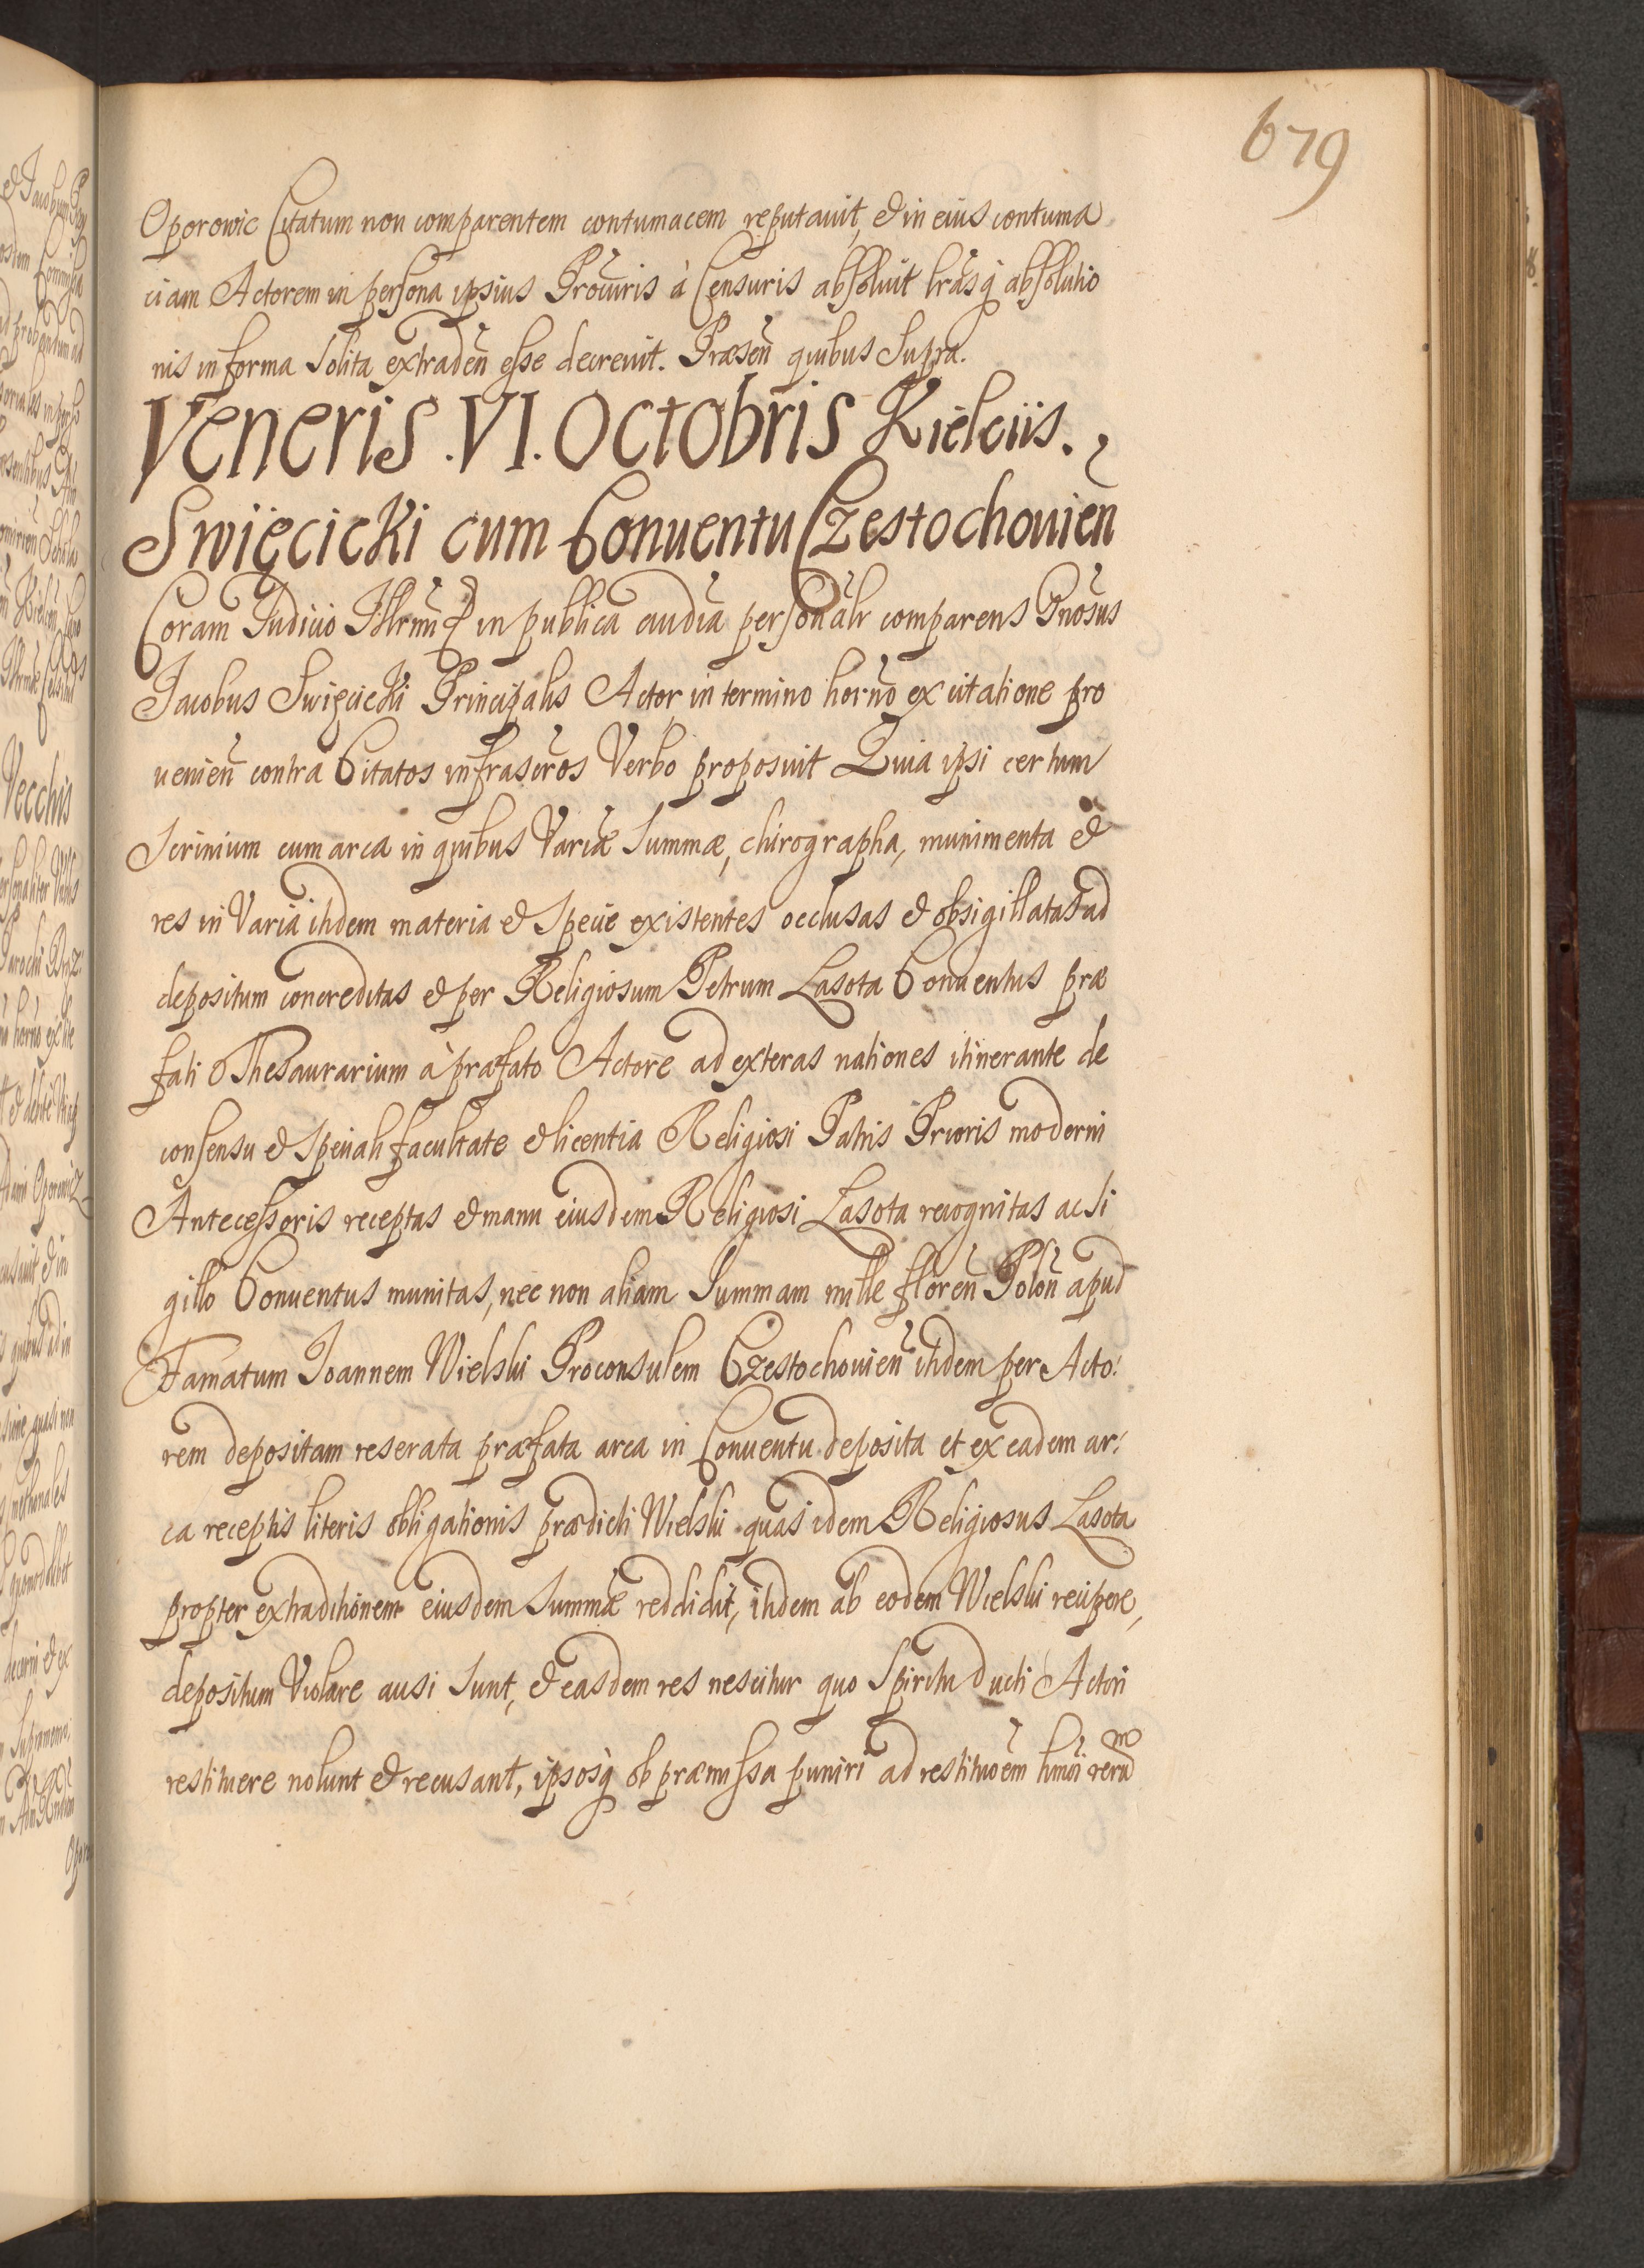 679
Oporowic Citatum non comparentem contumacem reputauit, et in eius contuma
ciam Actorem in persona ipsius Procuris à Censuris absoluit lrasq absolutio
nis in forma solita extraden esse decreuit. Præsen quibus supra.
Veneris .VI. Octobris Kielciis.
Swięcicki cum Conuentu Czestochouien
Coram Iudicio in publica audia personalr comparens Gnosus
Iacobus Swięcicki Principalis Actor in termino horno ex citatione pro
uenien contra Citatos infrascros Verbo proposuit Quia ipsi certum
Scrinium cum arca in quibus Variæ Summæ, chirographa, munimenta et
res in Varia itidem materia et Specie existentes occlusas et obsigillatas ad
depositum concreditas et per Religiosum Petrum Lasota Conuentus præ
fati Thesaurarium à præfato Actore ad exteras nationes itinerante de
consensu et Speciali facultate et licentia Religiosi Patris Prioris moderni
Antecessoris receptas et manu eiusdem Religiosi Lasota recognitas ac si
gillo Conuentus munitas, nec non aliam Summam mille floren Polon apud
Famatum Ioannem Wielski Proconsulem Czestochouien itidem per Acto:
rem depositam reserata præfata arca in Conuentu deposita et ex eadem ar:
ca receptis literis obligationis prædicti Wielski quas idem Religiosus Lasota
propter extraditionem eiusdem Summæ reddidit, itidem ab eodem Wielski recipere,
depositum Violare ausi sunt, et easdem res nescitur quo Spiritu ducti Actori
restituere nolunt et recusant, ipsosq ob præmissa puniri ad restituoem hmoi reru